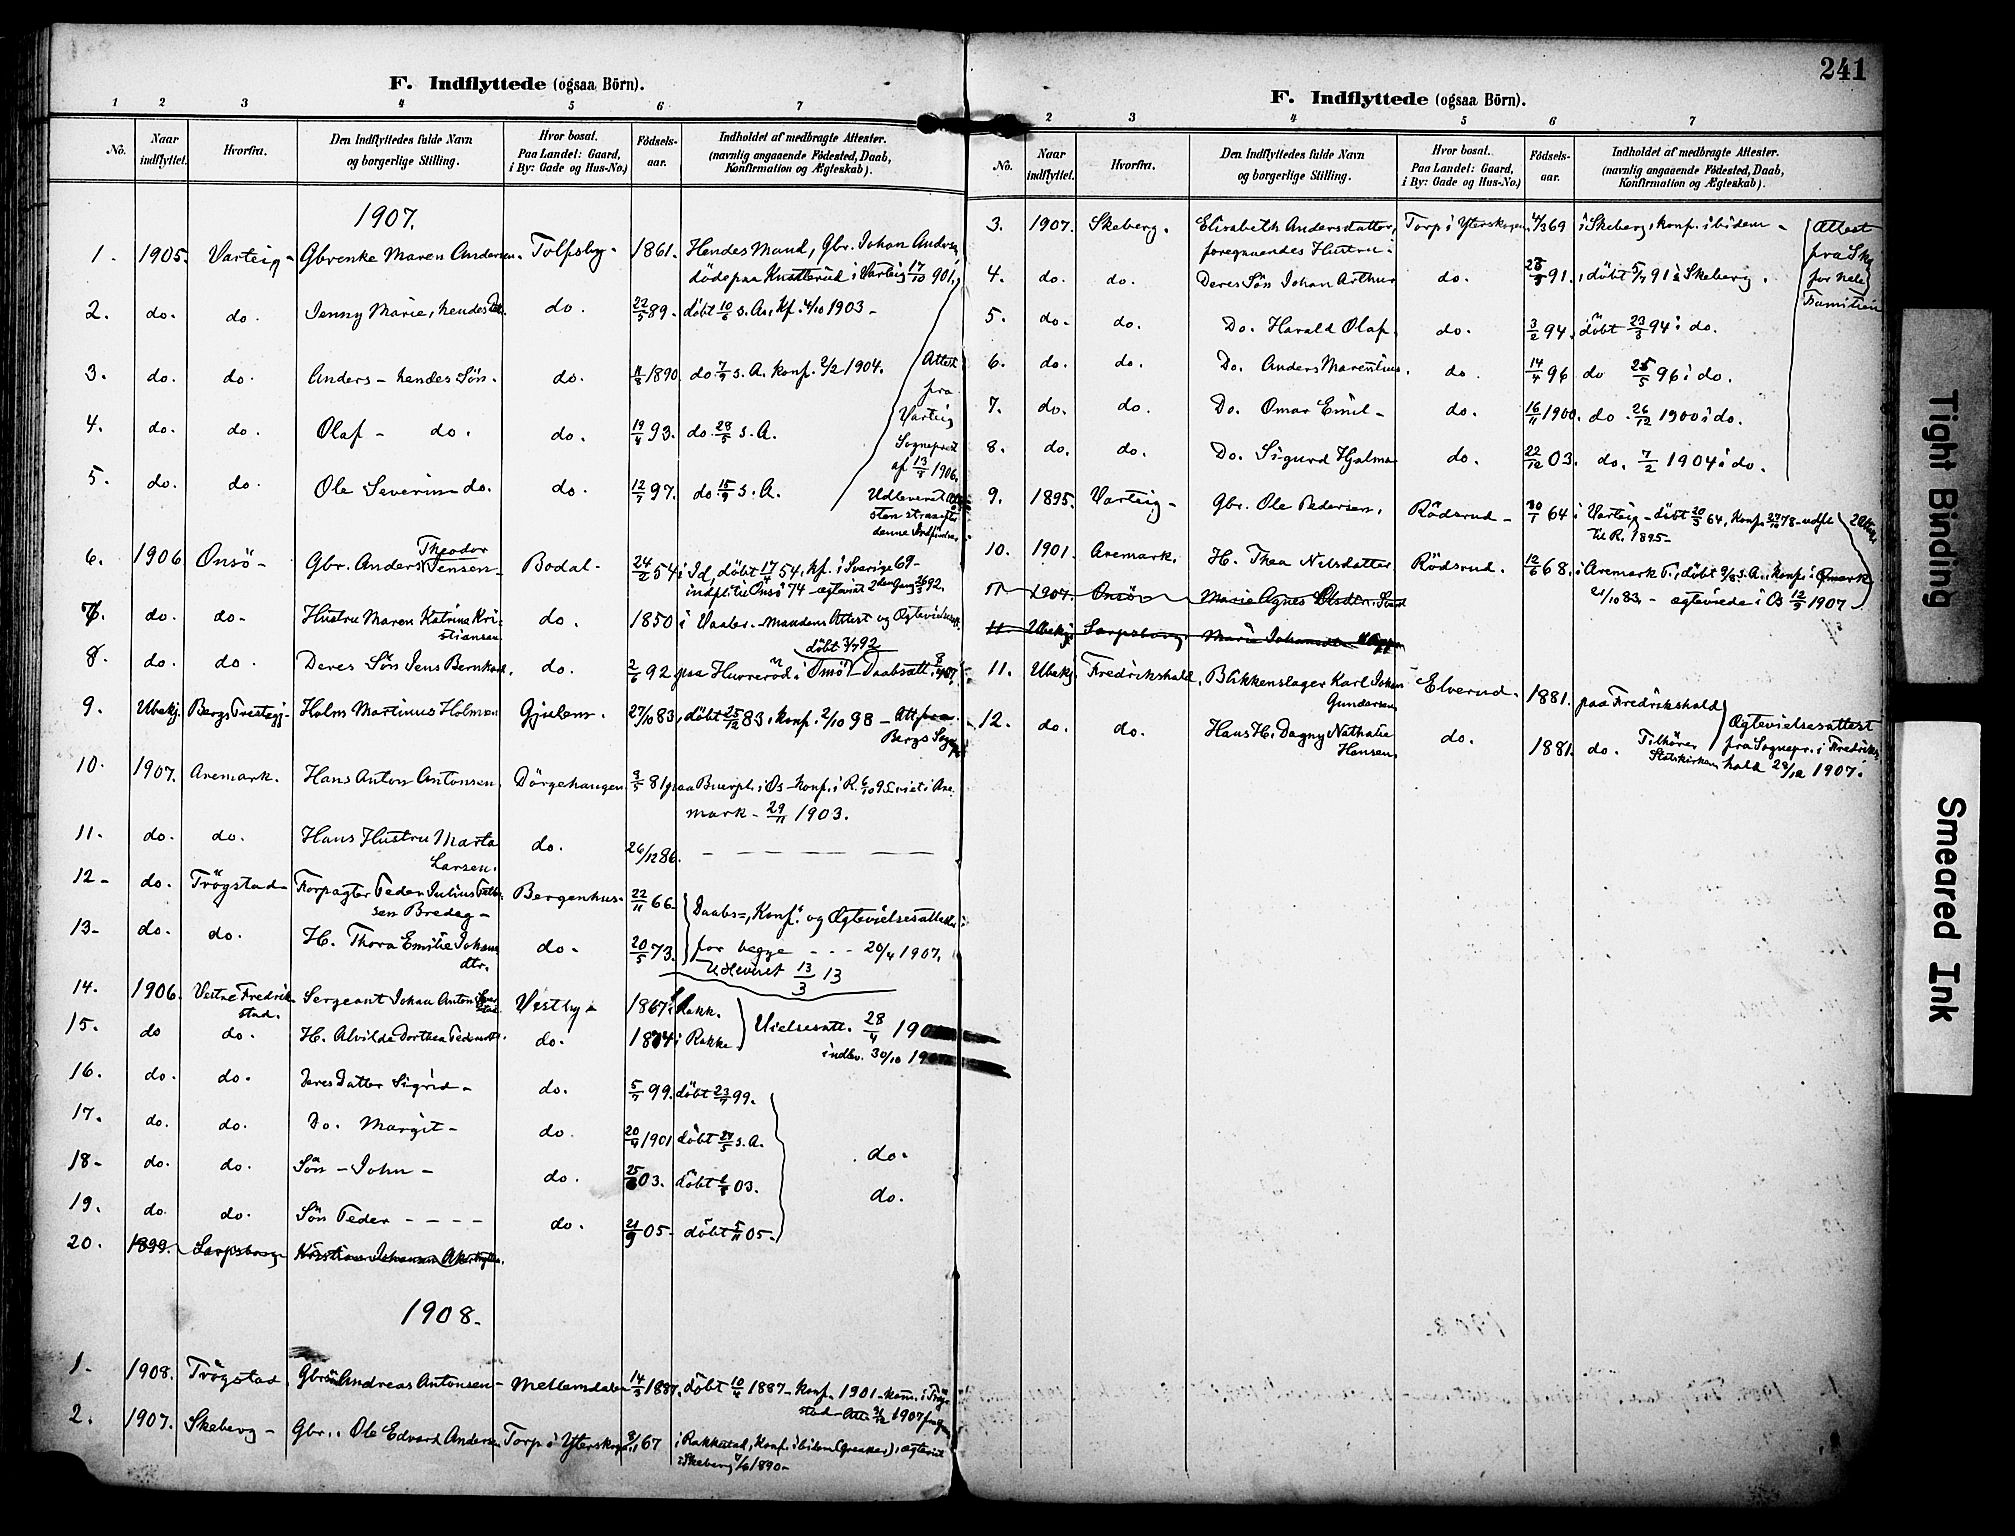 F. Indflyttede (ogsaa Börn).
1 2 3 4 5 6 7
No. Naar indflyttet. Hvorfra. Den Indflyttedes fulde Navn og borgerlige Stilling. Hvor bosat. Paa Landet: Gaard, i By: Gade og Hus-No.) Födsels-aar. Indholdet af medbragte Attester. (navnlig angaaende Födested, Daab, Konfirmation og Ægteskab).
1907.
1. 1905. Varteig - Gbrenke Maren Andersen. Tolfsby - 1861. Hendes Mand, Gbr. Johan Anders
döde paa i Varteig 17/10 901,
2. do. do. Jenny Marie, hendes Dtr. do. 22/5 89. döbt 10/6 s. A., Kf. 4/10 1903 -
3. do. do. Anders - hendes Sön. do. 11/8 1890 do 7/9 s. A. konf. 2/2 1904. Attest
fra
4. do. do. Olaf - do. do. 19/4 93. do. 28/5 s. A. Varteig
Sogneprest
af 13/9 1906.
5. do. do. Ole Severin - do. do. 12/7 97. do. 15/9 s. A. Udleveret
denne
6. 1906 Onsö - Gbr. Anders Theodor Jensen - Bodal - 24/2 54 i Id, döbt 17/4 54, kf. i Sverige 69 -
indfl. til Onsö 74 - ægteviet 2den Gang 26/3 92.
7. do. do. Hustru Maren Katrina Kri-
stiansen do. 1850 i Vaaler - Mandens Attest og Ægtevielses
döbt 3/7 92
8. do. do. Deres Sön Jens Bernhard. do. 2/6 92 paa Hurreröd i Onsö - Daabsatt.
9. Ubekj. Bergs Prestegj. Holm Martinus Holmen Gjulem. 27/10 83, döbt 25/12 83, konf. 2/10 98 - Att. fra
Bergs Sogn
10. 1907. Aremark. Hans Anton Antonsen. Dörgehaugen 3/5 81 paa Buerpl. i Øs - Konf. i R. 6/10 95 viet i Are
mark - 29/11 1903.
11. do. do. Hans Hustru Marta
Larsen. do. 26/12 86. - - - - - -
12 - do. Trögstad Forpagter Peder Julius
sen Bredeg - Bergenhus - 22/11 66 - Daabs=, Konf. og Ægtevielsesattester
13 - do. do. H. Thora Emilie Johans
dtr. do - 20/5 73. for begge - - - 20/4 1907.
Udleveret 13/3 13
14. 1906. Vestre Fredrik
stad. Sergeant Johan Anton Vestby - 1867 i Rakk. Vielsesatt. 28/4 190
15. do do. H. Alvilde Dorthea do. 1874 i Rakke. indlev. 30/10 190
16. do. do. Deres Datter Sigrid - do. 5/7 99. döbt 23/7 99.
17. do. do. Do. Margit - do. 20/4 1901 döbt 27/5 s. A.
18 - do. do. Sön - John - do. 25/6 03. döbt 03. do.
19. do. do. Sön Peder - - - - do. 21/9 05 - döbt 5/11 05 - do.
20. 1899. Sarpsborg Kristian Johannes
1908.
1 - 1908. Trögstad. Gbr. Andreas Antonsen - Mellemdalen 14/3 1887. döbt 10/4 1887 - konf. 1901 - kom. i Trög
stad - Att. 1907 fra
2. 1907. Skeberg - Gbr. Ole Edvard Andersen Torp i Yterskogen 67 i Rakkestad, Konf. ibidem (Greaker), ægteviet
i Skeberg 1890 -
241
F. Indflyttede (ogsaa Börn).
2 3 4 5 6 7
No. Naar indflyttet. Hvorfra. Den Indflyttedes fulde Navn og borgerlige Stilling. Hvor bosat. Paa Landet: Gaard, i By: Gade og Hus-No.) Födsels-aar. Indholdet af medbragte Attester. (navnlig angaaende Födested, Daab, Konfirmation og Ægteskab).
3. 1907. Skeberg. Elisabeth Andersdatter, Torp i Yterskogen 4/3 69 i Skeberg, konf. ibidem - Attest
foregaaendes Hustru. fra Skj
4. do. do. Deres Sön Johan Arthur do. 91. döbt 5/7 91 i Skeberg. for hele
Familien
5. do. do. Do. Harald Olaf. do. 3/2 94. döbt 23/3 94 i do.
6. do. do. Do. Anders Marentius. do. 14/4 96 do 25/5 96 i do.
7. do. do. Do. Omar Emil - do. 16/11 1900. do. 26/12 1900 i do.
8. do. do. Do. Sigurd Hjalmar do. 22/12 03. do. 7/2 1904 i do.
9. 1895. Varteig - Gbr. Ole Pedersen. Rödsrud - 30/1 64 i Varteig - döbt 20/3 64, Konf. 27/10 78 - udfl.
til R. 1895 -
10. 1901. Aremark. H. Thea Nilsdatter Rödsrud. 12/6 68. i Aremark P., döbt 9/8 s. A., konf. i Ømark
21/10 83. - ægteviede i Øs 12/5 1907.
11 1904. Onsö Marie Agnes Olsdtr.
11 Ubekj. Sarpsborg. Marie Johansdtr
11. Ubekj. Fredrikshald. Blikkenslager Karl Johan
Gundersen Elverud - 1881. paa Fredrikshald Ægtevielsesattest
12. do. do. Hans H. Dagny Nathalie
Hansen do. 1881. do. Tilhörer
Statskirken fra Sognepr. i Fredriks
hald 28/12 1907.
Tight Binding
Smeared Ink